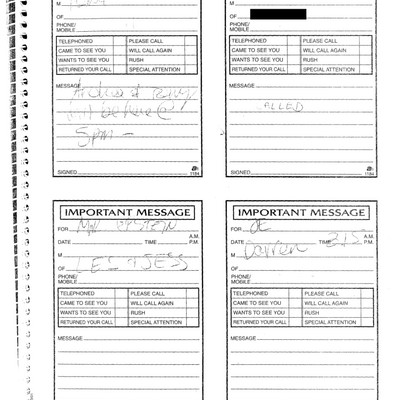 M
M
OF
OF
PHONE/
MOBILE
PHONE/
MOBILE
TELEPHONED PLEASE CALL
CAME TO SEE YOU WILL CALL AGAIN
WANTS TO SEE YOU RUSH
RETURNED YOUR CALL SPECIAL ATTENTION
TELEPHONED PLEASE CALL
CAME TO SEE YOU WILL CALL AGAIN
WANTS TO SEE YOU RUSH
RETURNED YOUR CALL SPECIAL ATTENTION
MESSAGE
will be here @
5pm -
SIGNED 1184
MESSAGE
CALLED
SIGNED 1184
IMPORTANT MESSAGE
FOR
DATE TIME A.M. P.M.
M LES + JESS
OF
PHONE/
MOBILE
TELEPHONED PLEASE CALL
CAME TO SEE YOU WILL CALL AGAIN
WANTS TO SEE YOU RUSH
RETURNED YOUR CALL SPECIAL ATTENTION
MESSAGE
IMPORTANT MESSAGE
FOR JE
DATE TIME 3:15 A.M. P.M.
M Darren
OF
PHONE/
MOBILE
TELEPHONED PLEASE CALL
CAME TO SEE YOU WILL CALL AGAIN
WANTS TO SEE YOU RUSH
RETURNED YOUR CALL SPECIAL ATTENTION
MESSAGE